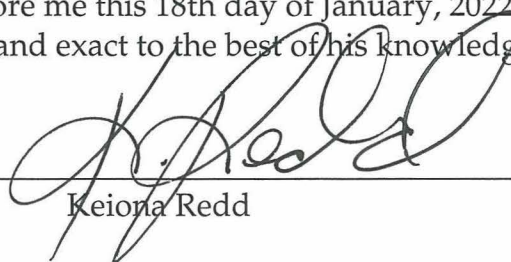 ore me this 18th day of January, 2022
and exact to the best of his knowledg
K. Redd
Keiona Redd